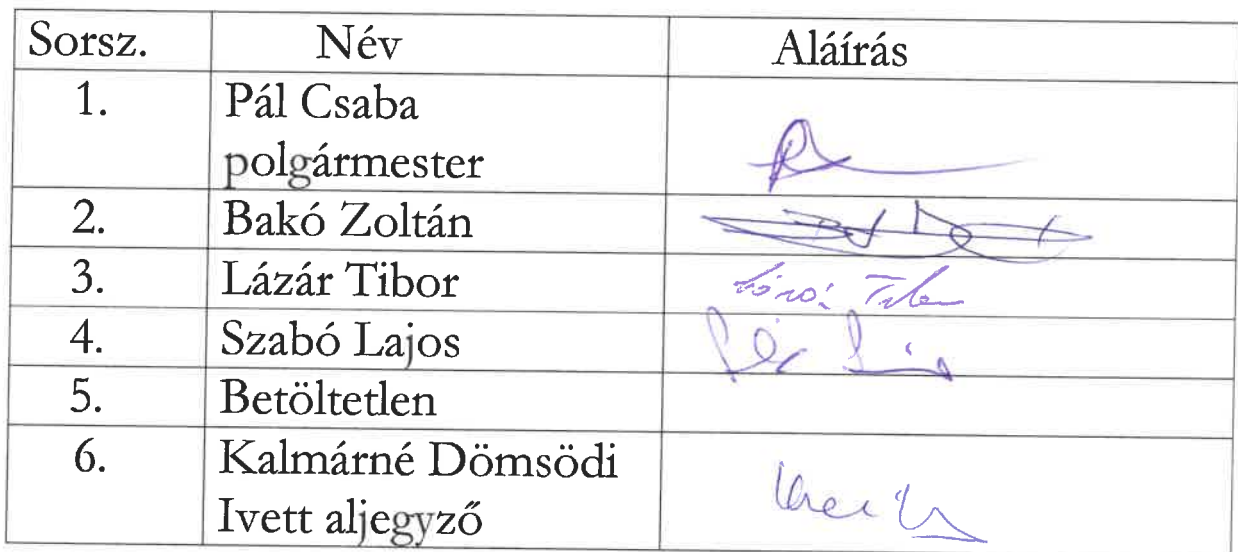 Sorsz. Név Aláírás
1. Pál Csaba
polgármester
2. Bakó Zoltán
3. Lázár Tibor
4. Szabó Lajos
5. Betöltetlen
6. Kalmárné Dömsödi
Ivett aljegyző